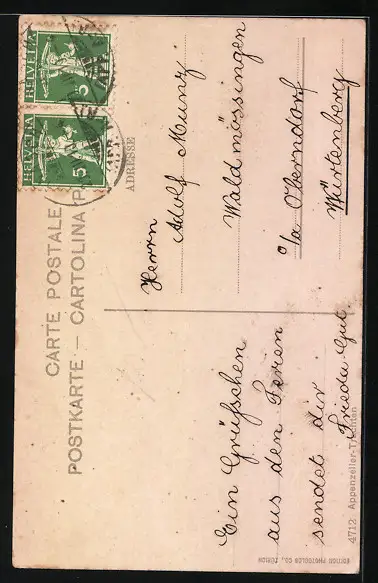 CARTE POSTALE
POSTKARTE — CARTOLINA
HELVETIA
5
HELVETIA
5
ADRESSE
Herrn
Adolf Munz
Waldmössingen
o/a Oberndorf
Würtenberg
Ein Grüßchen
aus den Ferien
sendet dir
Frieda
4712 Appenzeller-Trachten
EDITION PHOTOGLOB CO., ZÜRICH